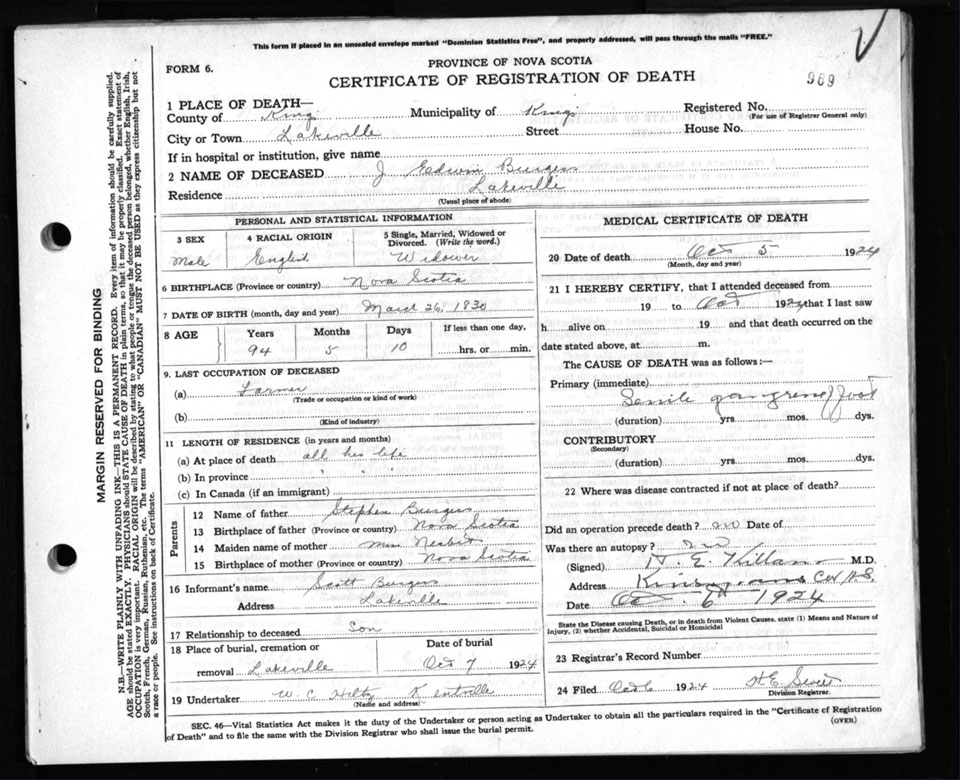 This form if placed in an unsealed envelope marked "Dominion Statistics Free", and properly addressed, will pass through the mails "FREE."
FORM 6.
PROVINCE OF NOVA SCOTIA
CERTIFICATE OF REGISTRATION OF DEATH
969
1 PLACE OF DEATH—
County of King Municipality of Kings Registered No.
(For use of Registrar General only)
City or Town Lakeville Street House No.
If in hospital or institution, give name
2 NAME OF DECEASED J Edwin Burgess
Residence Lakeville
(Usual place of abode)
PERSONAL AND STATISTICAL INFORMATION
3 SEX 4 RACIAL ORIGIN 5 Single, Married, Widowed or Divorced. (Write the word.)
Male English Widower
6 BIRTHPLACE (Province or country) Nova Scotia
7 DATE OF BIRTH (month, day and year) 26, 1830
8 AGE Years Months Days If less than one day,
94 5 10 hrs. or min.
9. LAST OCCUPATION OF DECEASED
(a) Farmer
(Trade or occupation or kind of work)
(b)
(Kind of industry)
11 LENGTH OF RESIDENCE (in years and months)
(a) At place of death all his life
(b) In province " " "
(c) In Canada (if an immigrant)
Parents
12 Name of father Stephen Burgess
13 Birthplace of father (Province or country) Nova Scotia
14 Maiden name of mother Miss Nesbit
15 Birthplace of mother (Province or country) Nova Scotia
16 Informant's name Scott Burgess
Address Lakeville
17 Relationship to deceased Son
18 Place of burial, cremation or Date of burial
removal Lakeville Oct 7 1924
19 Undertaker W C Hiltz Kentville
(Name and address)
MEDICAL CERTIFICATE OF DEATH
20 Date of death Oct 5 1924
(Month, day and year)
21 I HEREBY CERTIFY, that I attended deceased from
19 to Oct 1924 that I last saw
h alive on 19 and that death occurred on
date stated above, at m.
The CAUSE OF DEATH was as follows:—
Primary (immediate) Senile gangrene of foot
(duration) yrs. mos. dys.
CONTRIBUTORY
(Secondary)
(duration) yrs. mos. dys.
22 Where was disease contracted if not at place of death?
Did an operation precede death? no Date of
Was there an autopsy? no
(Signed) M.D.
Address
Date Oct. 6th 1924
State the Disease causing Death, or in death from Violent Causes. state (1) Means and Nature of
Injury, (2) whether Accidental, Suicidal or Homicidal
23 Registrar's Record Number
24 Filed Oct 6 1924
Division Registrar.
SEC. 46—Vital Statistics Act makes it the duty of the Undertaker or person acting as Undertaker to obtain all the particulars required in the "Certificate of Registration
of Death" and to file the same with the Division Registrar who shall issue the burial permit.
(OVER)
MARGIN RESERVED FOR BINDING
N.B.—WRITE PLAINLY WITH UNFADING INK—THIS IS A PERMANENT RECORD. Every item of information should be carefully supplied.
AGE should be stated EXACTLY. PHYSICIANS should STATE CAUSE OF DEATH in plain terms, so that it may be properly classified. Exact statement of
OCCUPATION is very important. RACIAL ORIGIN will be described by stating to what people or tongue the deceased person belonged, whether English, Irish,
Scotch, French, German, Russian, Ruthenian, etc. The terms "AMERICAN" OR "CANADIAN" MUST NOT BE USED as they express citizenship but not
a race or people. See instructions on back of Certificate.